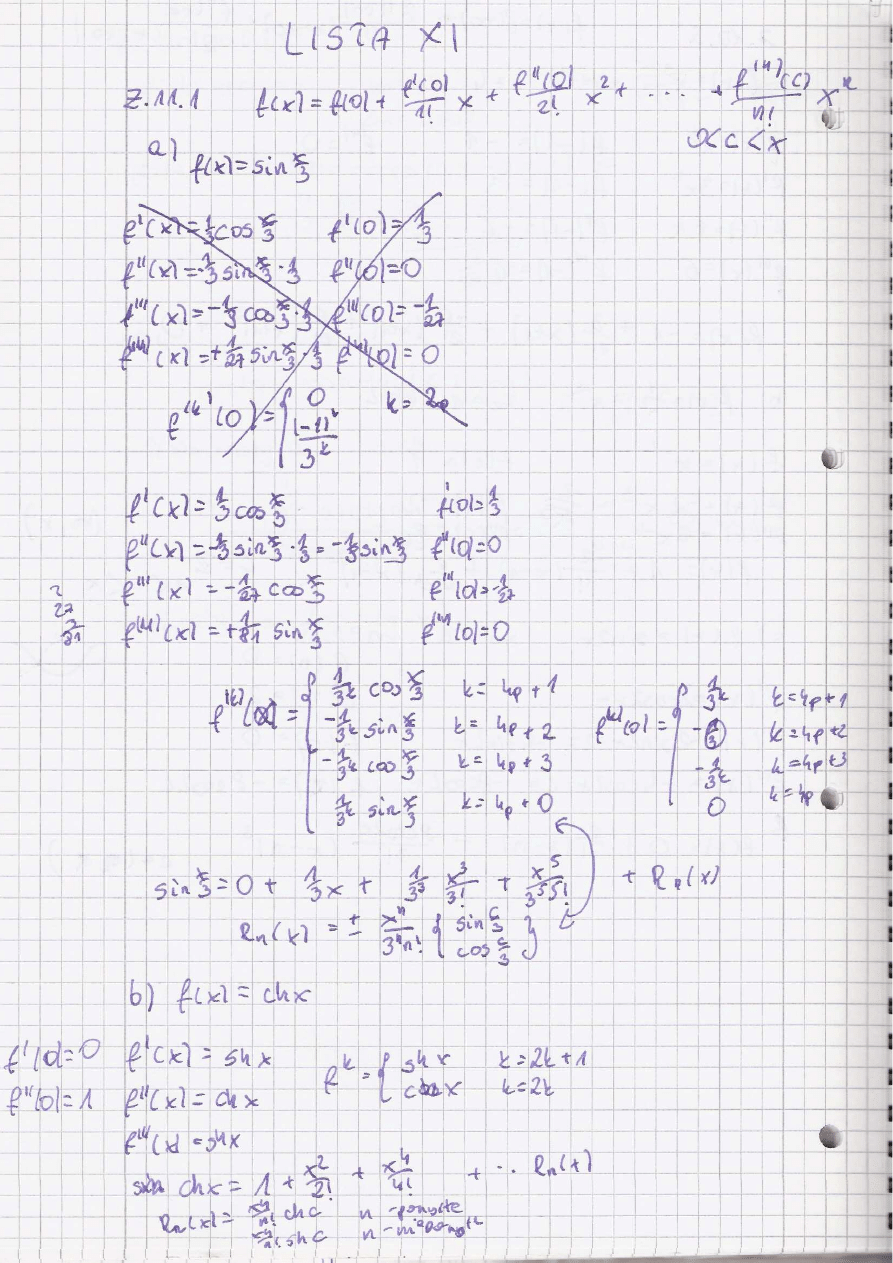 LISTA XI
Z.11.1 f(x) = f(0) + f'(0)/1! x + f''(0)/2! x² + ... + f⁽ⁿ⁾(c)/n! xⁿ
0<c<x
a) f(x) = sin x/3
f'(x) = 1/3 cos x/3 f'(0) = 1/3
f''(x) = -1/3 sin x/3 · 1/3 f''(0) = 0
f'''(x) = -1/9 cos x/3 · 1/3 f'''(0) = -1/27
f⁽⁴⁾(x) = +1/27 sin x/3 · 1/3 f⁽⁴⁾(0) = 0
f⁽ᵏ⁾(0) = { 0 k = 2p
(-1)ᵏ/3ᵏ
f'(x) = 1/3 cos x/3 f'(0) = 1/3
f''(x) = -1/3 sin x/3 · 1/3 = -1/9 sin x/3 f''(0) = 0
f'''(x) = -1/27 cos x/3 f'''(0) = -1/27
27
f⁽⁴⁾(x) = +1/81 sin x/3 f⁽⁴⁾(0) = 0
f⁽ᵏ⁾(x) = { 1/3ᵏ cos x/3 k = 4p + 1
-1/3ᵏ sin x/3 k = 4p + 2
-1/3ᵏ cos x/3 k = 4p + 3
1/3ᵏ sin x/3 k = 4p + 0
f⁽ᵏ⁾(0) = { 1/3ᵏ k = 4p + 1
k = 4p + 2
-1/3ᵏ k = 4p + 3
0 k = 4p
sin x/3 = 0 + 1/3 x + 1/3³ x³/3! + x⁵/3⁵5! + Rₙ(x)
Rₙ(x) = ± xⁿ/3ⁿn! { sin c/3
cos c/3 }
b) f(x) = chx
f'(0) = 0 f'(x) = shx
f''(0) = 1 f''(x) = chx
fᵏ = { shx k = 2k + 1
chx k = 2k
f'''(x) = shx
chx = 1 + x²/2! + x⁴/4! + .. Rₙ(x)
Rₙ(x) = xⁿ/n! chc n - parzyste
xⁿ/n! shc n - nieparzyste